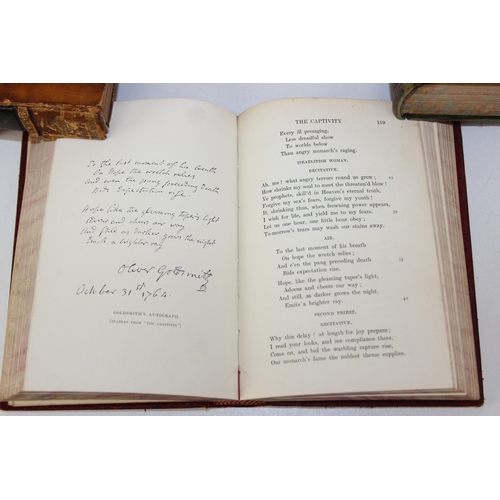 To the last moment of his breath
On hope the wretch relies
And even the pang preceding Death
Bids Expectation rise.
Hope like the gleaming taper's light
Adorns and chears our way
And still as darker grows the night
Emits a brighter ray
Oliver Goldsmith
October 31st 1764.
GOLDSMITH'S AUTOGRAPH
(STANZAS FROM "THE CAPTIVITY")
THE CAPTIVITY 119
Every ill presaging,
Less dreadful show
To worlds below
Than angry monarch's raging.
ISRAELITISH WOMAN.
RECITATIVE.
Ah, me! what angry terrors round us grow;
How shrinks my soul to meet the threaten'd blow!
Ye prophets, skill'd in Heaven's eternal truth,
Forgive my sex's fears, forgive my youth!
If, shrinking thus, when frowning power appears,
I wish for life, and yield me to my fears.
Let us one hour, one little hour obey;
To-morrow's tears may wash our stains away.
AIR.
To the last moment of his breath
On hope the wretch relies;
And e'en the pang preceding death
Bids expectation rise.
Hope, like the gleaming taper's light,
Adorns and cheers our way;
And still, as darker grows the night,
Emits a brighter ray.
SECOND PRIEST.
RECITATIVE.
Why this delay? at length for joy prepare;
I read your looks, and see compliance there.
Come on, and bid the warbling rapture rise,
Our monarch's fame the noblest theme supplies.